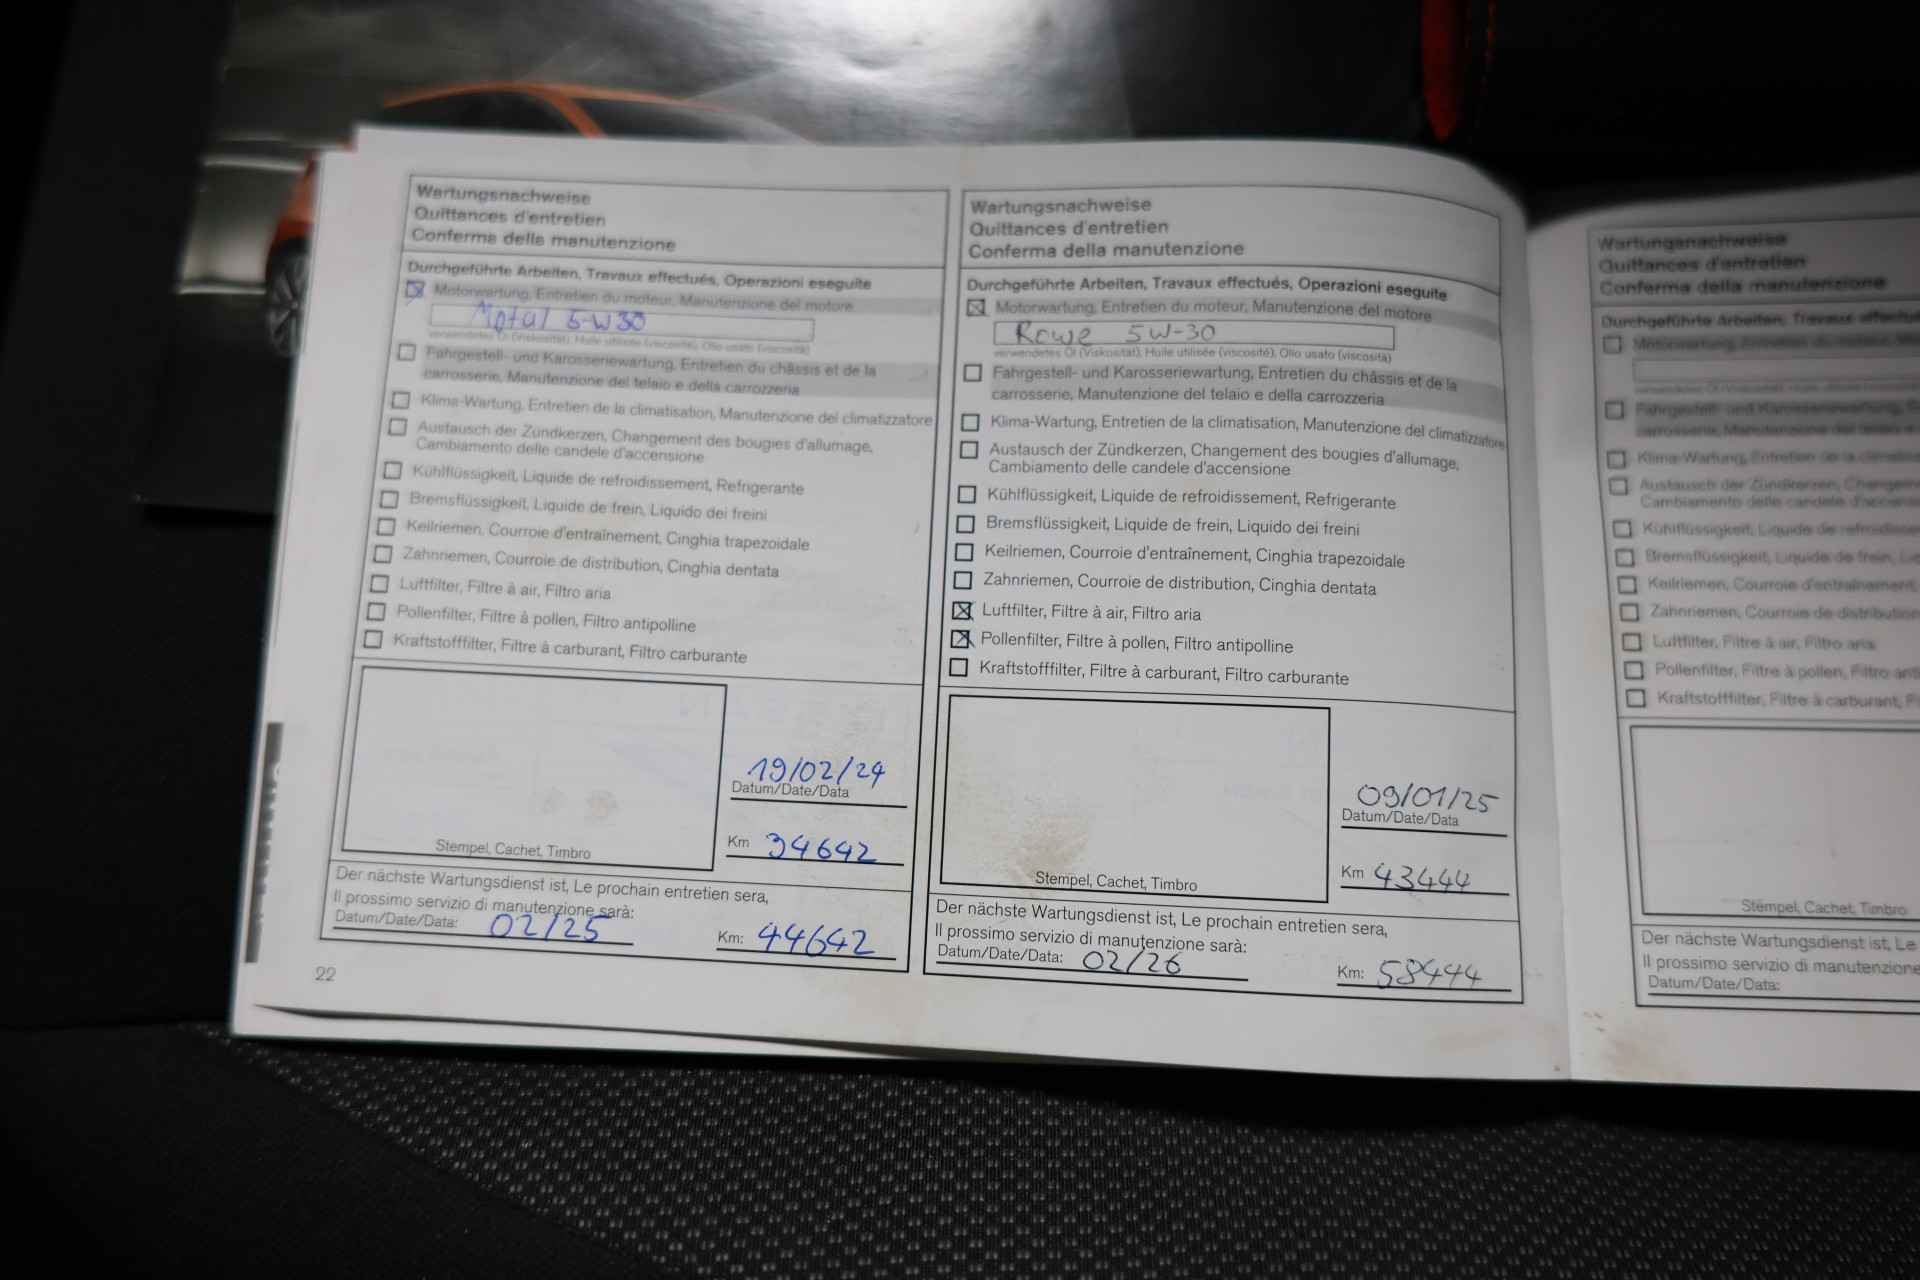 Wartungsnachweise
Quittances d'entretien
Conferma della manutenzione
Durchgeführte Arbeiten, Travaux effectués, Operazioni eseguite
Motorwartung, Entretien du moteur, Manutenzione del motore
Motul 5-W30
verwendetes Öl (Viskosität), Huile utilisée (viscosité), Olio usato (viscosità)
Fahrgestell- und Karosseriewartung, Entretien du châssis et de la
carrosserie, Manutenzione del telaio e della carrozzeria
Klima-Wartung, Entretien de la climatisation, Manutenzione del climatizzatore
Austausch der Zündkerzen, Changement des bougies d'allumage,
Cambiamento delle candele d'accensione
Kühlflüssigkeit, Liquide de refroidissement, Refrigerante
Bremsflüssigkeit, Liquide de frein, Liquido dei freini
Keilriemen, Courroie d'entraînement, Cinghia trapezoidale
Zahnriemen, Courroie de distribution, Cinghia dentata
Luftfilter, Filtre à air, Filtro aria
Pollenfilter, Filtre à pollen, Filtro antipolline
Kraftstofffilter, Filtre à carburant, Filtro carburante
19/02/24
Datum/Date/Data
Km 34642
Stempel, Cachet, Timbro
Der nächste Wartungsdienst ist, Le prochain entretien sera,
Il prossimo servizio di manutenzione sarà:
Datum/Date/Data: 02/25 Km: 44642
22
Wartungsnachweise
Quittances d'entretien
Conferma della manutenzione
Durchgeführte Arbeiten, Travaux effectués, Operazioni eseguite
Motorwartung, Entretien du moteur, Manutenzione del motore
Rowe 5W-30
verwendetes Öl (Viskosität), Huile utilisée (viscosité), Olio usato (viscosità)
Fahrgestell- und Karosseriewartung, Entretien du châssis et de la
carrosserie, Manutenzione del telaio e della carrozzeria
Klima-Wartung, Entretien de la climatisation, Manutenzione del climatizzatore
Austausch der Zündkerzen, Changement des bougies d'allumage,
Cambiamento delle candele d'accensione
Kühlflüssigkeit, Liquide de refroidissement, Refrigerante
Bremsflüssigkeit, Liquide de frein, Liquido dei freini
Keilriemen, Courroie d'entraînement, Cinghia trapezoidale
Zahnriemen, Courroie de distribution, Cinghia dentata
Luftfilter, Filtre à air, Filtro aria
Pollenfilter, Filtre à pollen, Filtro antipolline
Kraftstofffilter, Filtre à carburant, Filtro carburante
09/01/25
Datum/Date/Data
Km 43444
Stempel, Cachet, Timbro
Der nächste Wartungsdienst ist, Le prochain entretien sera,
Il prossimo servizio di manutenzione sarà:
Datum/Date/Data: 02/26 Km: 58444
Wartungsnachweise
Quittances d'entretien
Conferma della manutenzione
Durchgeführte Arbeiten, Travaux
Motorwartung, Entretien du
Fahrgestell- und Karosseriewartung,
carrosserie, Manutenzione del telaio e
Klima-Wartung, Entretien de la
Austausch der Zündkerzen,
Cambiamento delle candele
Kühlflüssigkeit, Liquide de
Bremsflüssigkeit, Liquide de frein,
Keilriemen, Courroie d'entraînement,
Zahnriemen, Courroie de distribution
Luftfilter, Filtre à air, Filtro aria
Pollenfilter, Filtre à pollen, Filtro
Kraftstofffilter, Filtre à carburant,
Stempel, Cachet, Timbro
Der nächste Wartungsdienst ist, Le
Il prossimo servizio di manutenzione
Datum/Date/Data: